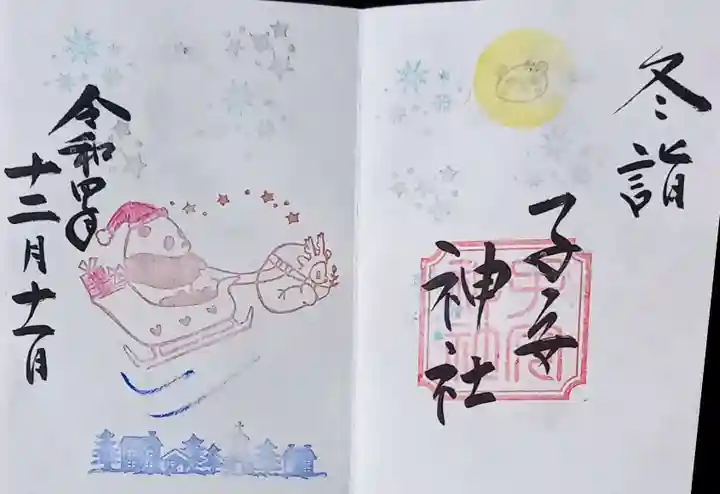 冬詣
子安
神社
子安
神社
令和四年
十二月十一日